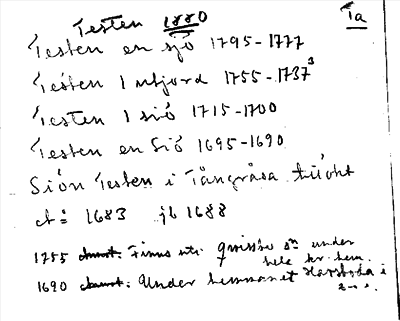 Testen 1880
Ta
Testen en sjö 1795-1777
Testen 1 utjord 1755-1737³
Testen 1 siö 1715-1700
Testen en Siö 1695-1690
Siön Testen i Tångråsa
1683 jb 1688
1755 Finns uti under
hela kr. hem.
1690 Under hemmanet Harsboda i